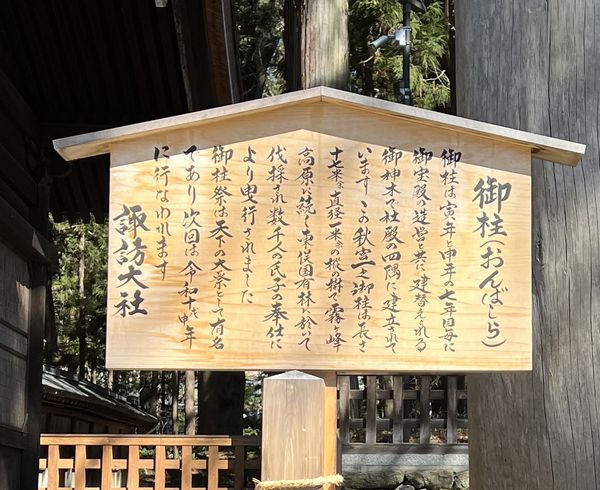 御柱(おんばしら)
御柱は寅年と申年の七年目毎に
御宝殿の造営と共に建替えれる
御神木で社殿の四隅に建立されて
います この秋宮一之御柱は長さ
十七米余 直径一米余の樅樹で霧ヶ峰
高原の続き東俣国有林に於いて
伐採され数千人の氏子の奉仕に
より曳行されました
御柱祭は天下の大祭として有名
であり次回は令和十年申年
に行なわれます
諏訪大社